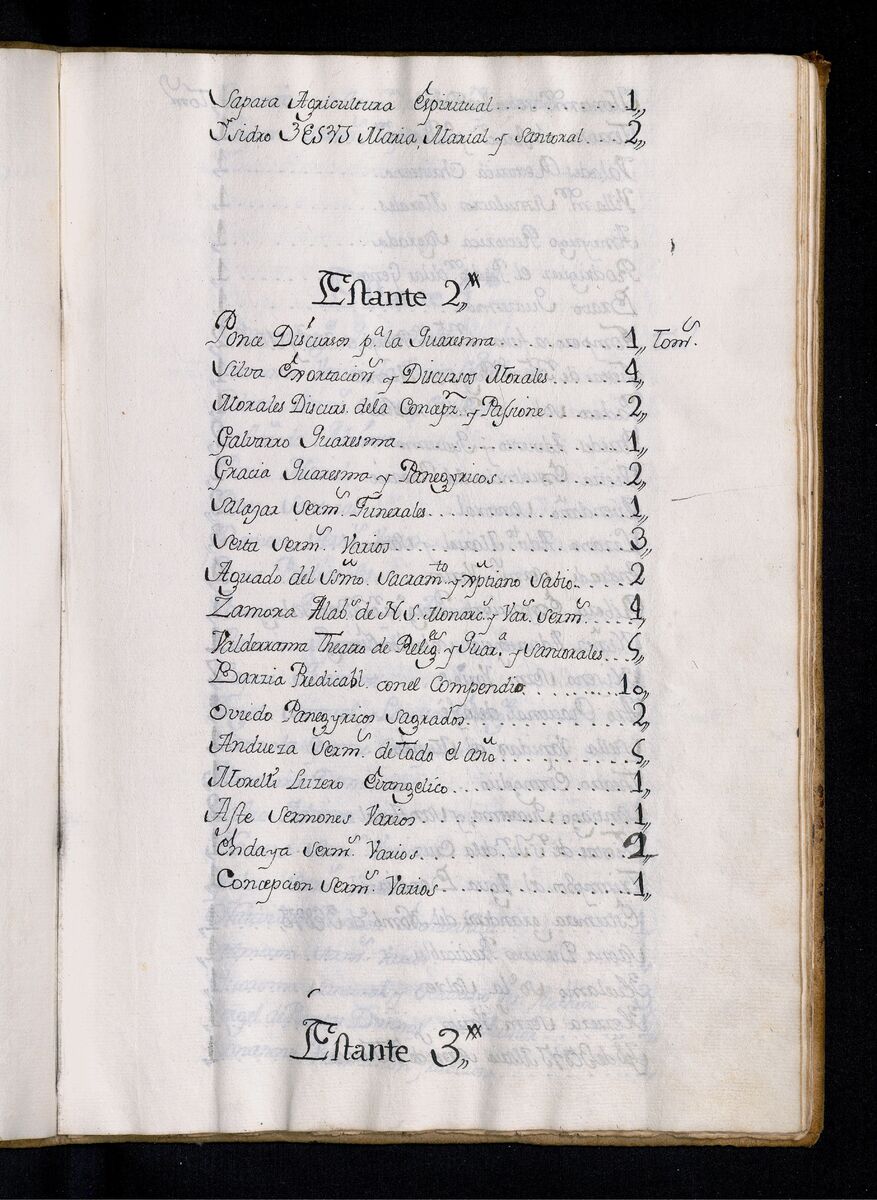 Sapata Agricultura Espiritual........... 1,,
Ysidro JESVS Maria, Marial y Santoral... 2,,
Estante 2,,
Ponce Discursos p.ª la Quaresma......... 1,, Tom.s
Silva Exortacion.s y Discursos Morales.. 4,,
Morales Discurs. dela Concep.n y Passione 2,,
Galvarro Quaresma....................... 1,,
Gracia Quaresma y Panegyricos........... 2,,
Salazar Serm.s Funerales................ 1,,
Seita Serm.s Varios..................... 3,,
Aguado del SS.mo Sacram.to y Xptiano Sabio.. 2
Zamora Alab.s de N. S. Monarc.s y Var.s Serm.s 4,,
Valderrama Theatro de Relig.es y Quar.ª y Santorales... 5,,
Barzia Predicabl. conel Compendio....... 10,,
Oviedo Panegyricos Sagrados............. 2,,
Andueza Serm.s de todo el año........... 5,,
Morelli Luzero Evangelico............... 1,,
Aste Sermones Varios.................... 1,,
Endaya Serm.s Varios.................... 2,,
Concepcion Serm.s Varios................ 1,,
Estante 3,,